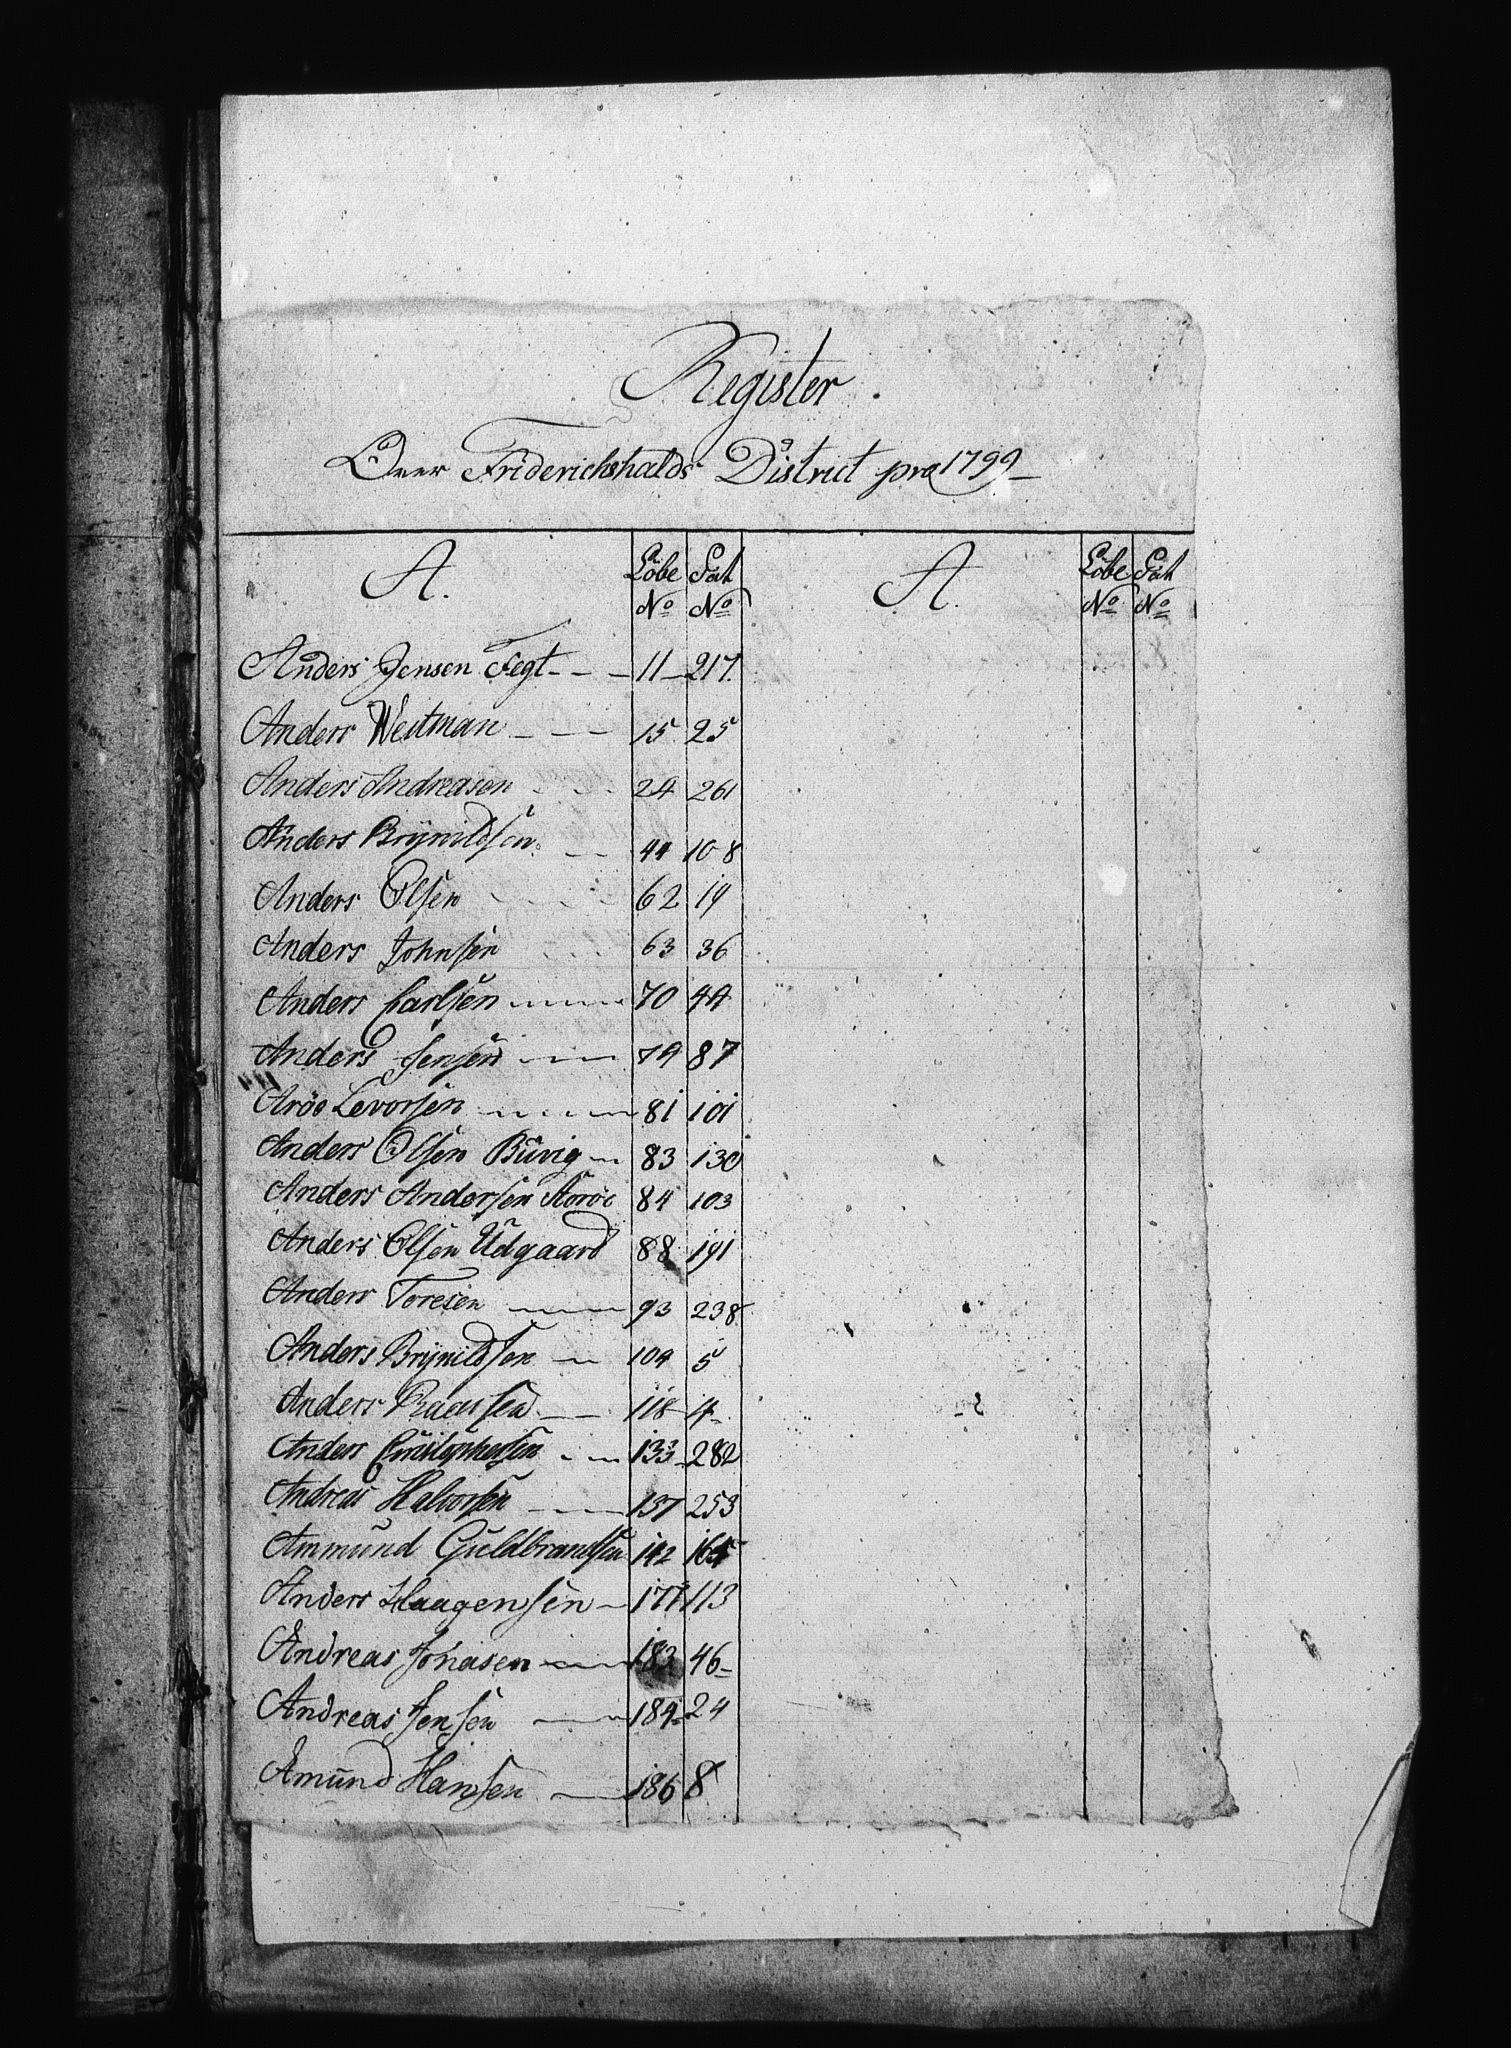 Register.
Over Friderichshalds District pro 1799
A. Löbe No Pat No A. Löbe No Pat No
Anders Jensen Fegt 11 217.
Anders Weitman 15 25
Anders Andreasen 24 261
Anders Brÿnildsen 44 108
Anders Olsen 62 19
Anders Johnsen 63 36
Anders Carlsen 70 44
Anders Jensen 79 87
Aröe Levorsen 81 101
Anders Olsen Buvig 83 130
Anders Andersen 84 103
Anders Olsen Udgaard 88 191
Anders Toresen 93 238
Anders Brÿnildsen 104 5
Anders 118 4
Anders Christophersen 133 282
Andreas Halvorsen 137 253
Ammund Guldbrandsen 142
Anders Haagensen 177 113
Andreas Jonasen 183 46
Andreas Jensen 184 24
Amund Hansen 186 8